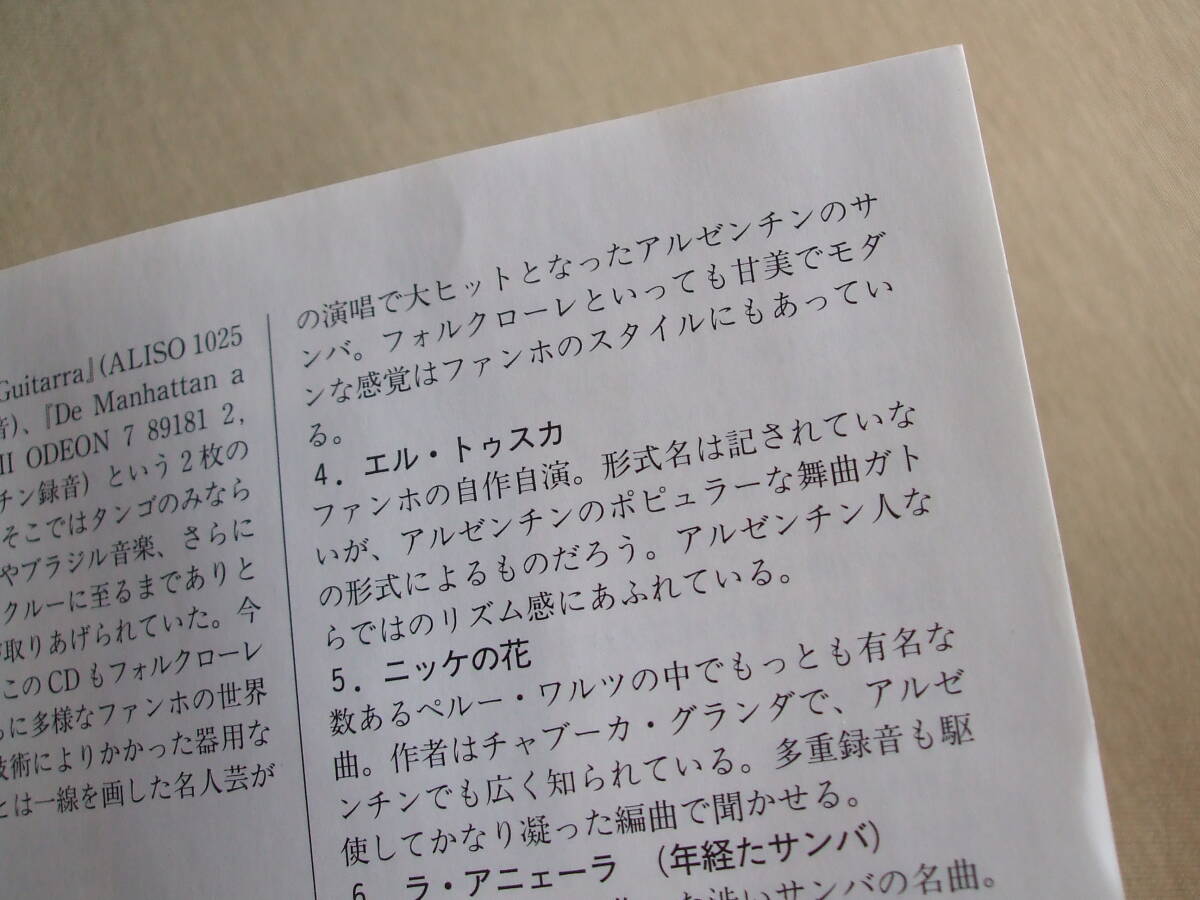 Guitarra』(ALISO 1025
音)、『De Manhattan a
II ODEON 7 89181 2,
チン録音) という2枚の
そこではタンゴのみなら
やブラジル音楽、さらに
クルーに至るまでありと
取りあげられていた。今
このCDもフォルクローレ
に多様なファンホの世界
技術によりかかった器用な
とは一線を画した名人芸が
の演唱で大ヒットとなったアルゼンチンのサ
ンバ。フォルクローレといっても甘美でモダ
ンな感覚はファンホのスタイルにもあってい
る。
4. エル・トゥスカ
ファンホの自作自演。形式名は記されていな
いが、アルゼンチンのポピュラーな舞曲ガト
の形式によるものだろう。アルゼンチン人な
らではのリズム感にあふれている。
5. ニッケの花
数あるペルー・ワルツの中でもっとも有名な
曲。作者はチャブーカ・グランダで、アルゼ
ンチンでも広く知られている。多重録音も駆
使してかなり凝った編曲で聞かせる。
6 ラ・アニェーラ (年経たサンバ)
な渋いサンバの名曲。